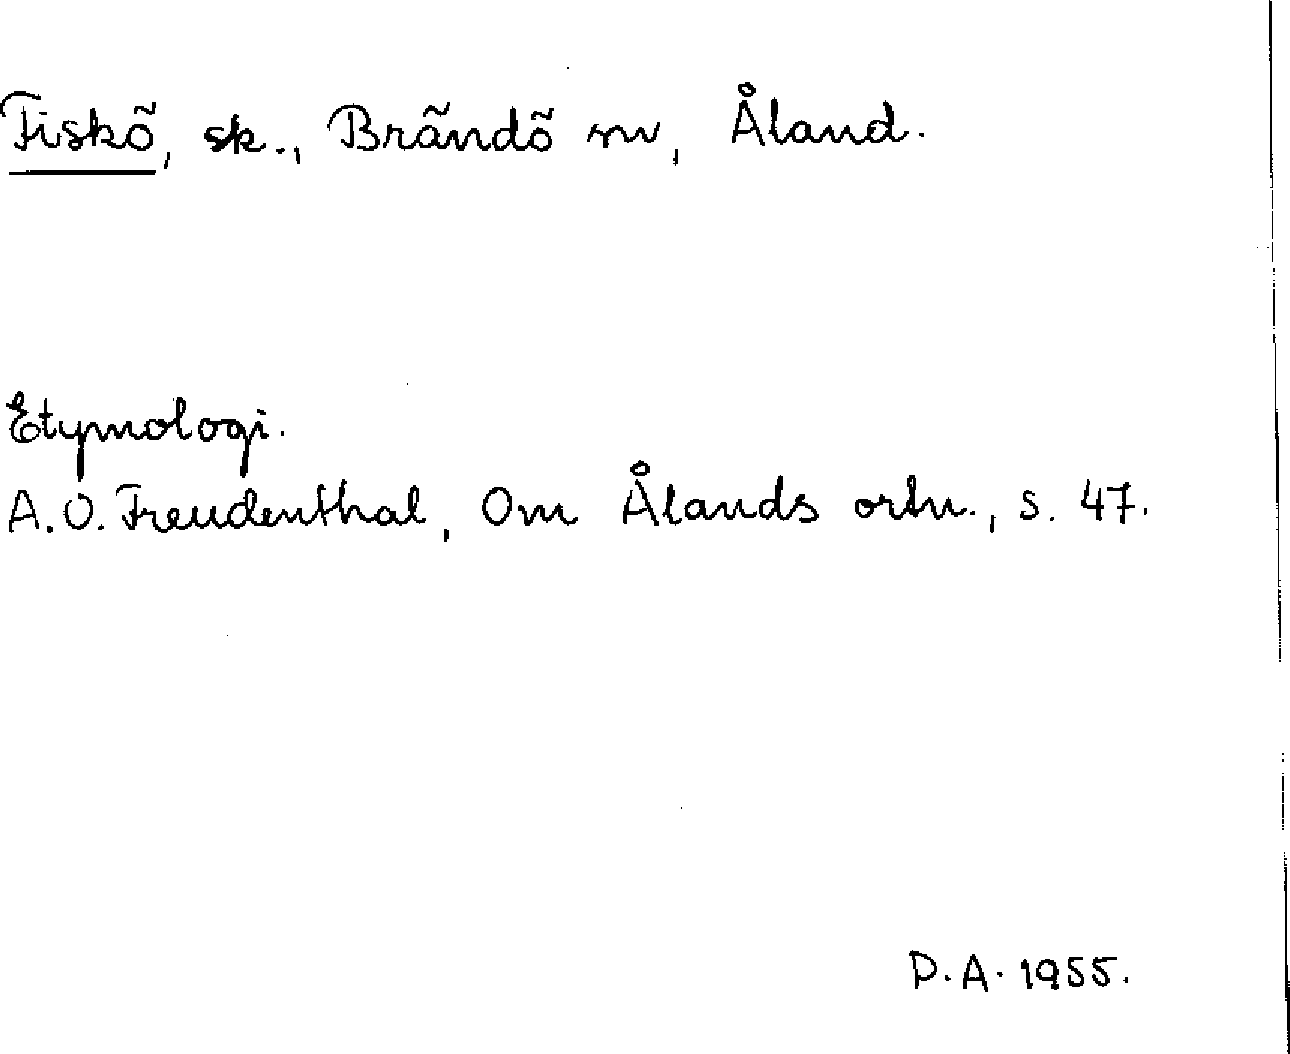 Fiskö, sk., Brändö sn, Åland.
Etymologi.
A.O. Freudenthal, Om Ålands ortn., s. 47.
D.A. 1955.